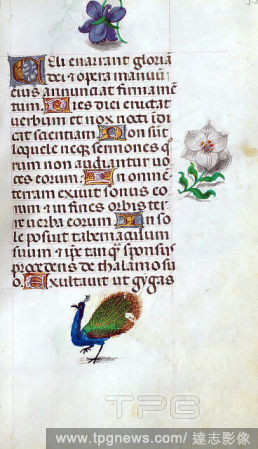 Celi enarrant gloria
dei et opera manuum
eius annunciat firmamē
tum. Dies diei eructat
verbum et nox nocti indi
cat scientiam. Non sūt
loquele neq; sermones q
rum non audiantur vo
ces eorum: In omnē
terram exivit sonus eo
rum et in fines orbis ter
re verba eorum. In so
le posuit tabernaculum
suum et ipe tanq̄ sponsus
procedens de thalamo su
o. Exultavit ut gygas
TPG
www.tpgnews.com/ 達志影像